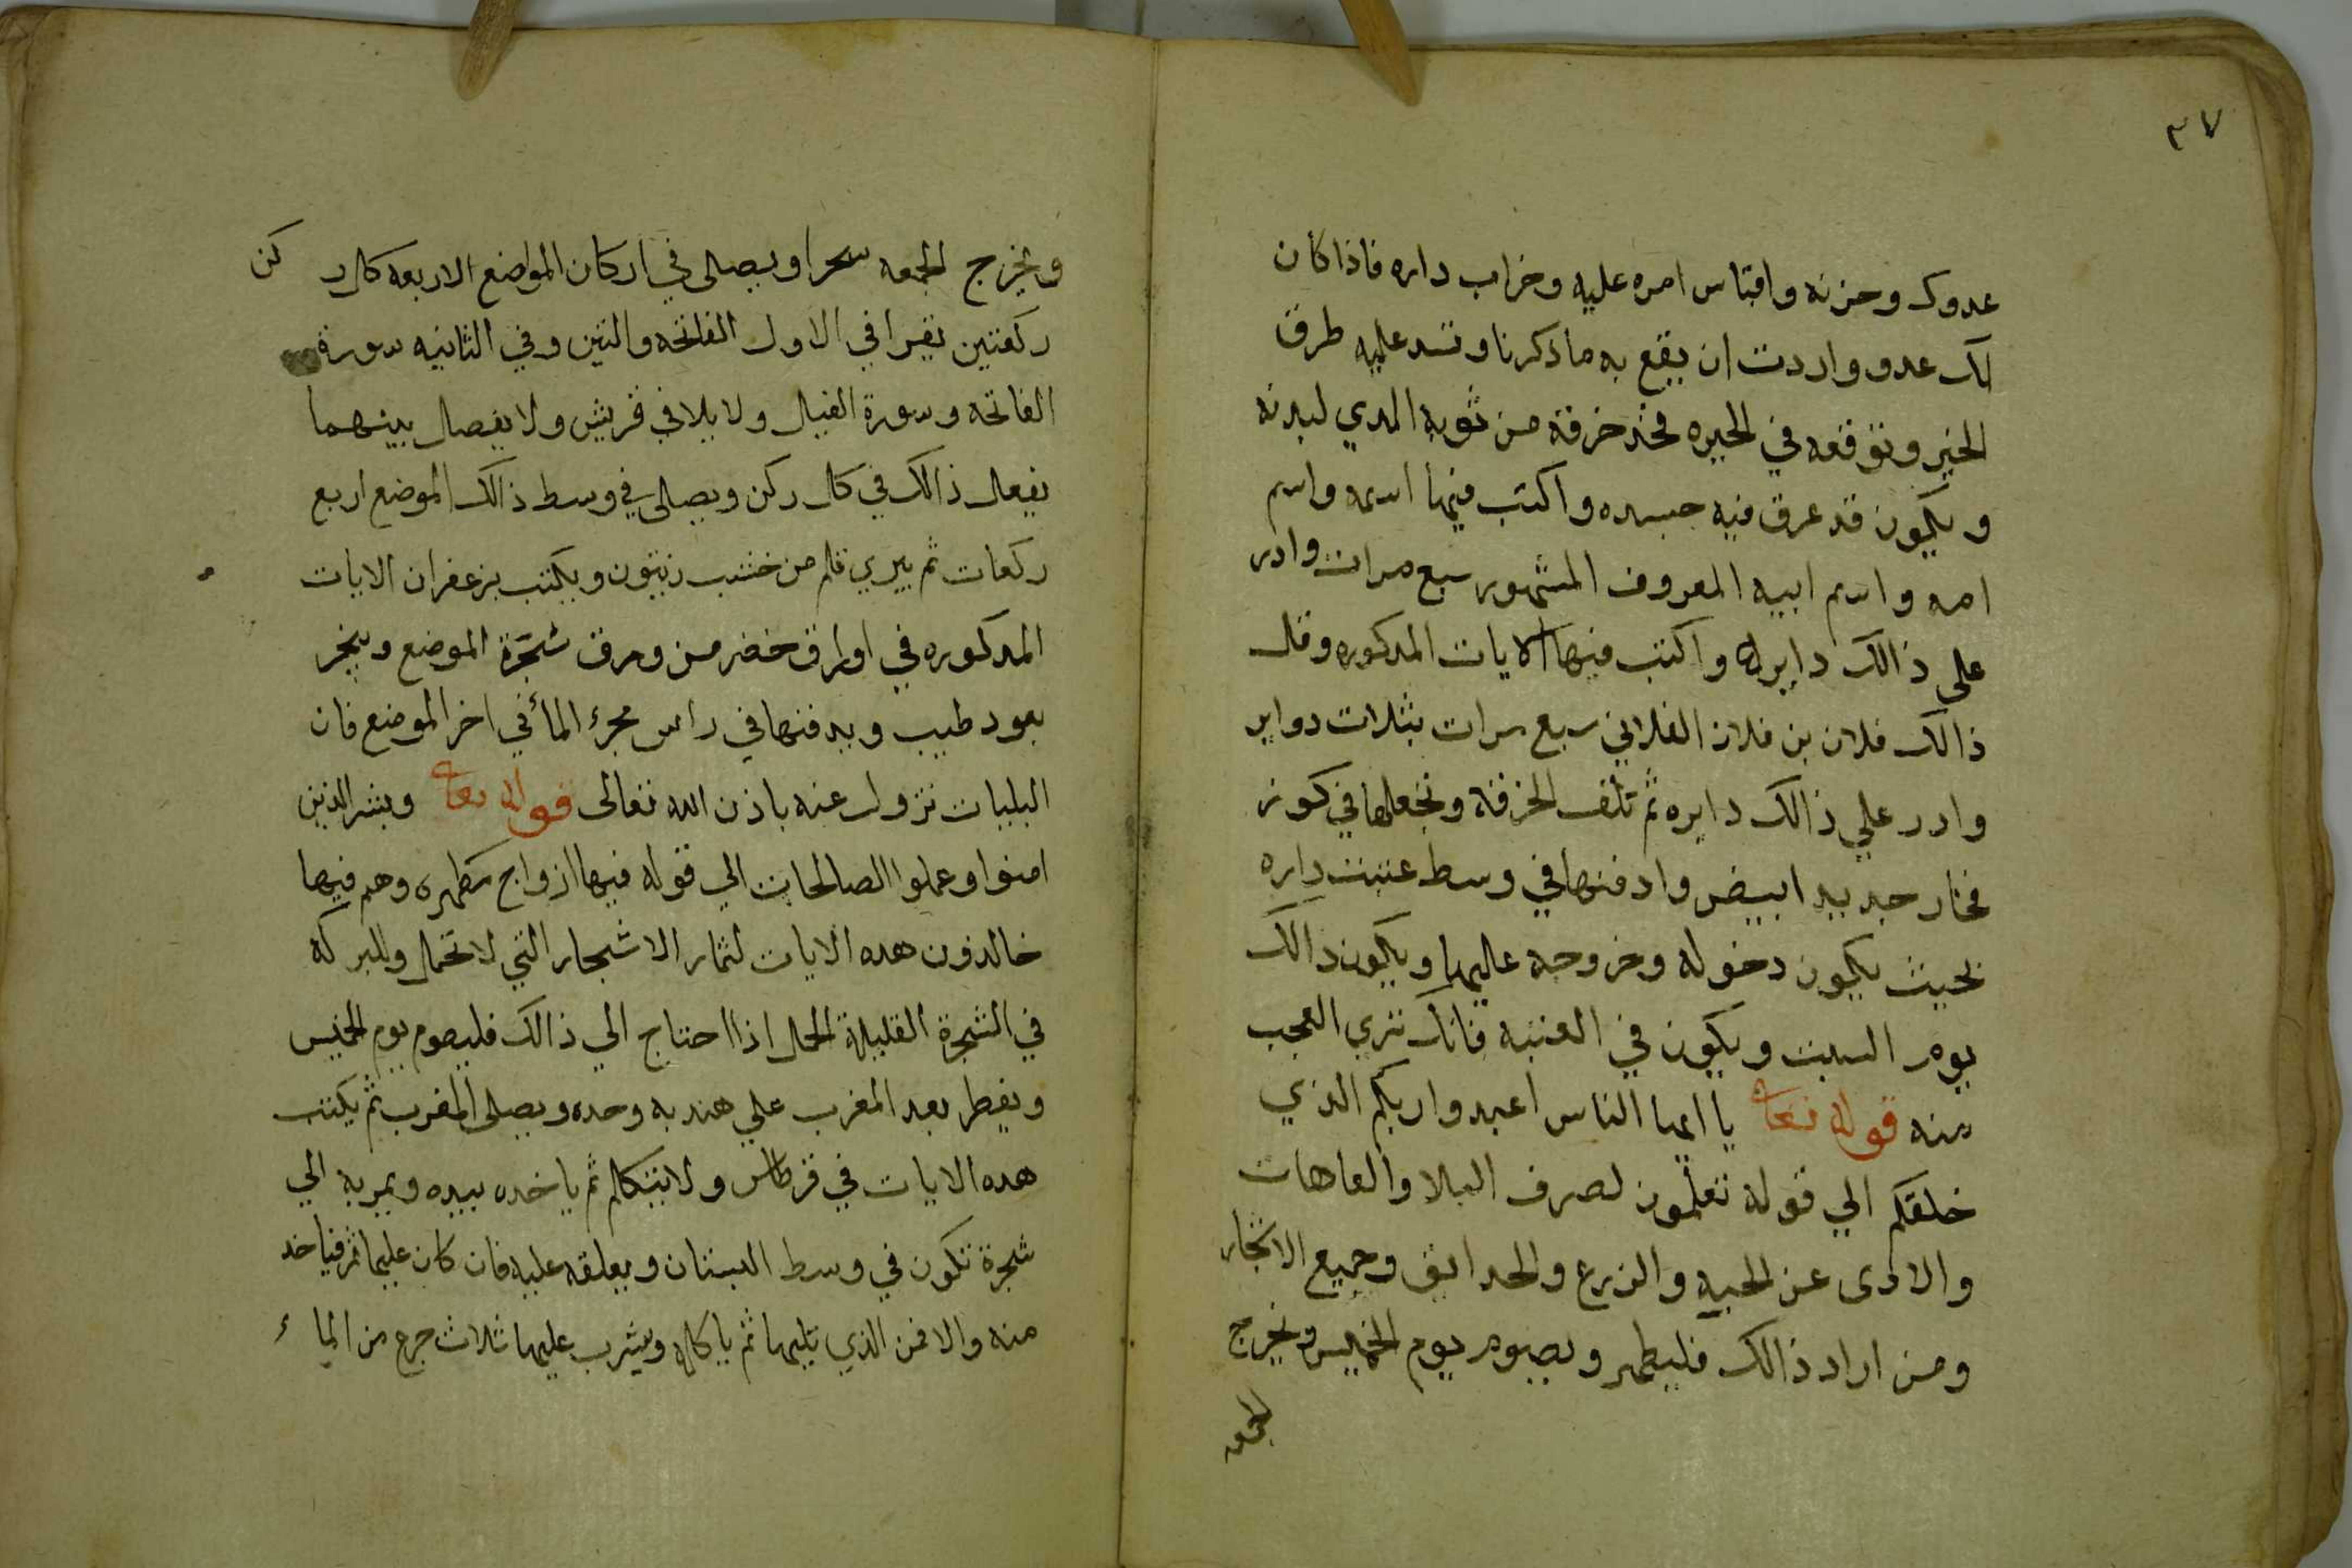 ٣٧
عدوك وحزنه واقتباس امره عليه وخراب داره فاذا كان
لك عدو واردت ان يقع به ما ذكرنا وتسد عليه طرق
الخير وتوقعه في الحيره فخذ خرقة من ثوبه المدي لبدنه
ويكون قد عرق فيه جسده واكتب فيها اسمه واسم
امه واسم ابيه المعروف المشهور سبع مرات وادر
على ذالك دايرة واكتب فيها الايات المدكوره وقل
ذالك فلان بن فلان الفلاني سبع مرات بثلاث دواير
وادر علي ذالك دايره ثم تلف الخرقة وتجعلها في كوز
فخار جديد ابيض وادفنها في وسط عتبت داره
بحيث يكون دخوله وخروجه عليها ويكون ذالك
يوم السبت ويكون في العتبه فانك تري العجب
منه قوله تعا يا ايها الناس اعبدوا ربكم الذي
خلقكم الي قوله تعلمون لصرف البلا والعاهات
والاذى عن الحبه والزرع والحدايق وجميع الاشجار
ومن اراد ذالك فليطهر ويصوم يوم الخميس ويخرج
الجمعه
ويخرج الجمعه سحرا ويصلى في اركان المواضع الاربعه كل ر كن
ركعتين يقرا في الاول الفاتحه والتين وفي الثانيه سورة
الفاتحه وسورة الفيل ولا يلافي قريش ولا يفصل بينهما
يفعل ذالك في كل ركن ويصلى في وسط ذالك الموضع اربع
ركعات ثم يبري قلم من خشب زيتون ويكتب بزعفران الايات
المدكوره في اوراق خضر من ورق شجرة الموضع ويبخر
بعود طيب ويدفنها في راس مجرء الماء في اخر الموضع فان
البليات تزول عنه باذن الله تعالى قوله تعا وبشر الذين
امنوا وعملوا الصالحات الي قوله فيها ازواج مطهره وهم فيها
خالدون هده الايات لثمار الاشجار التي لا تحمل وللبركه
في الشجرة القليلة الحمل اذا احتاج الي ذالك فليصوم يوم الخميس
ويفطر بعد المغرب علي هندبه وحده ويصلى المغرب ثم يكتب
هده الايات في قرطاس ولا يتكلم ثم ياخده بيده ويمر به الي
شجرة تكون في وسط البستان ويعلقه عليه فان كان عليها ثمر فياخد
منه والا فمن الذي يليها ثم ياكله ويشرب عليها ثلاث جرع من الماء